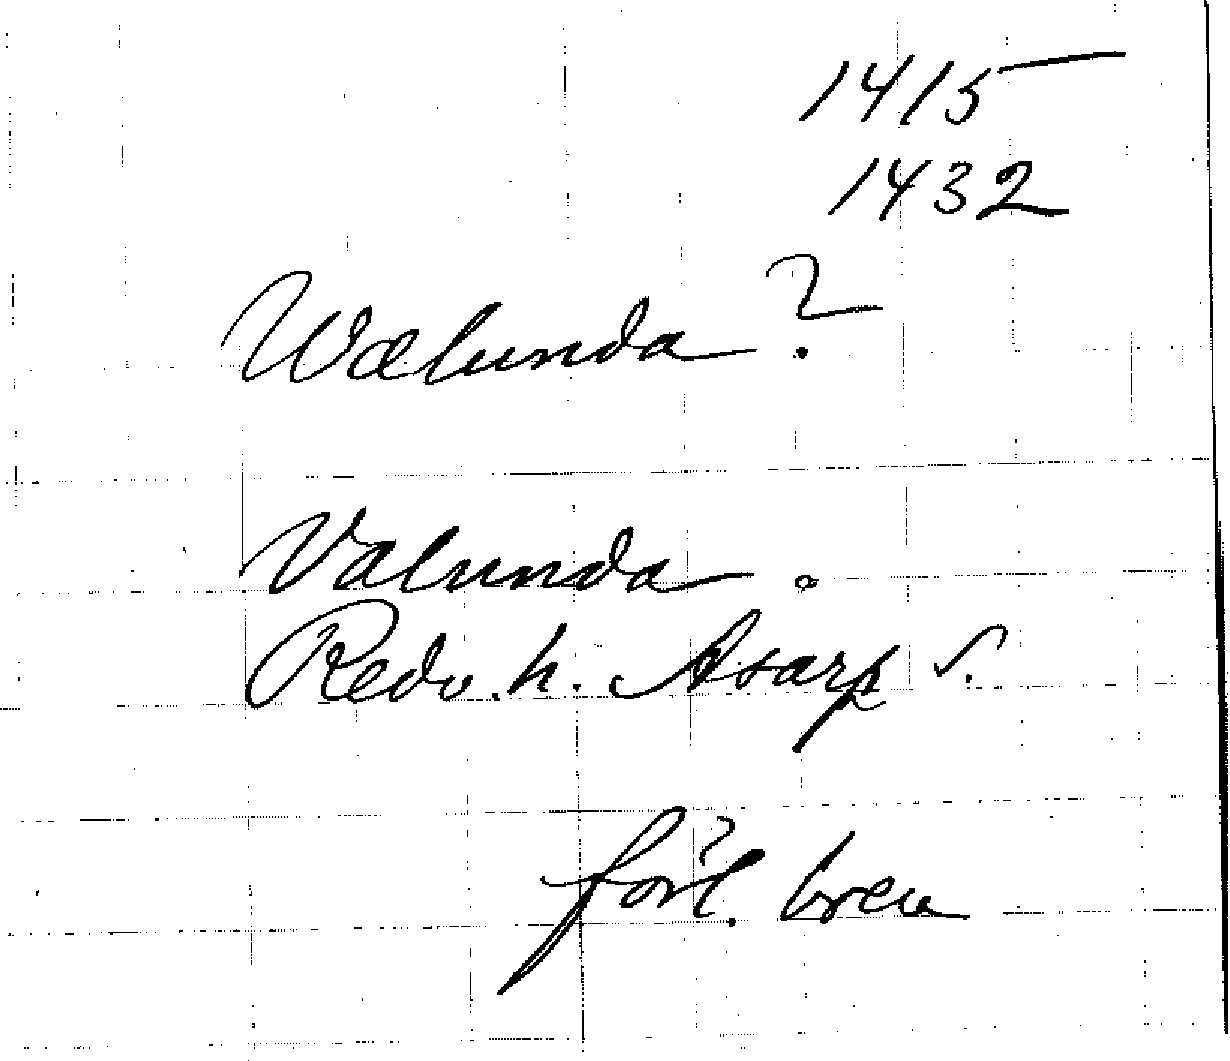 1415
1432
Wælunda ?
Valunda .
Redv. h. Asarp s.
forl. breu